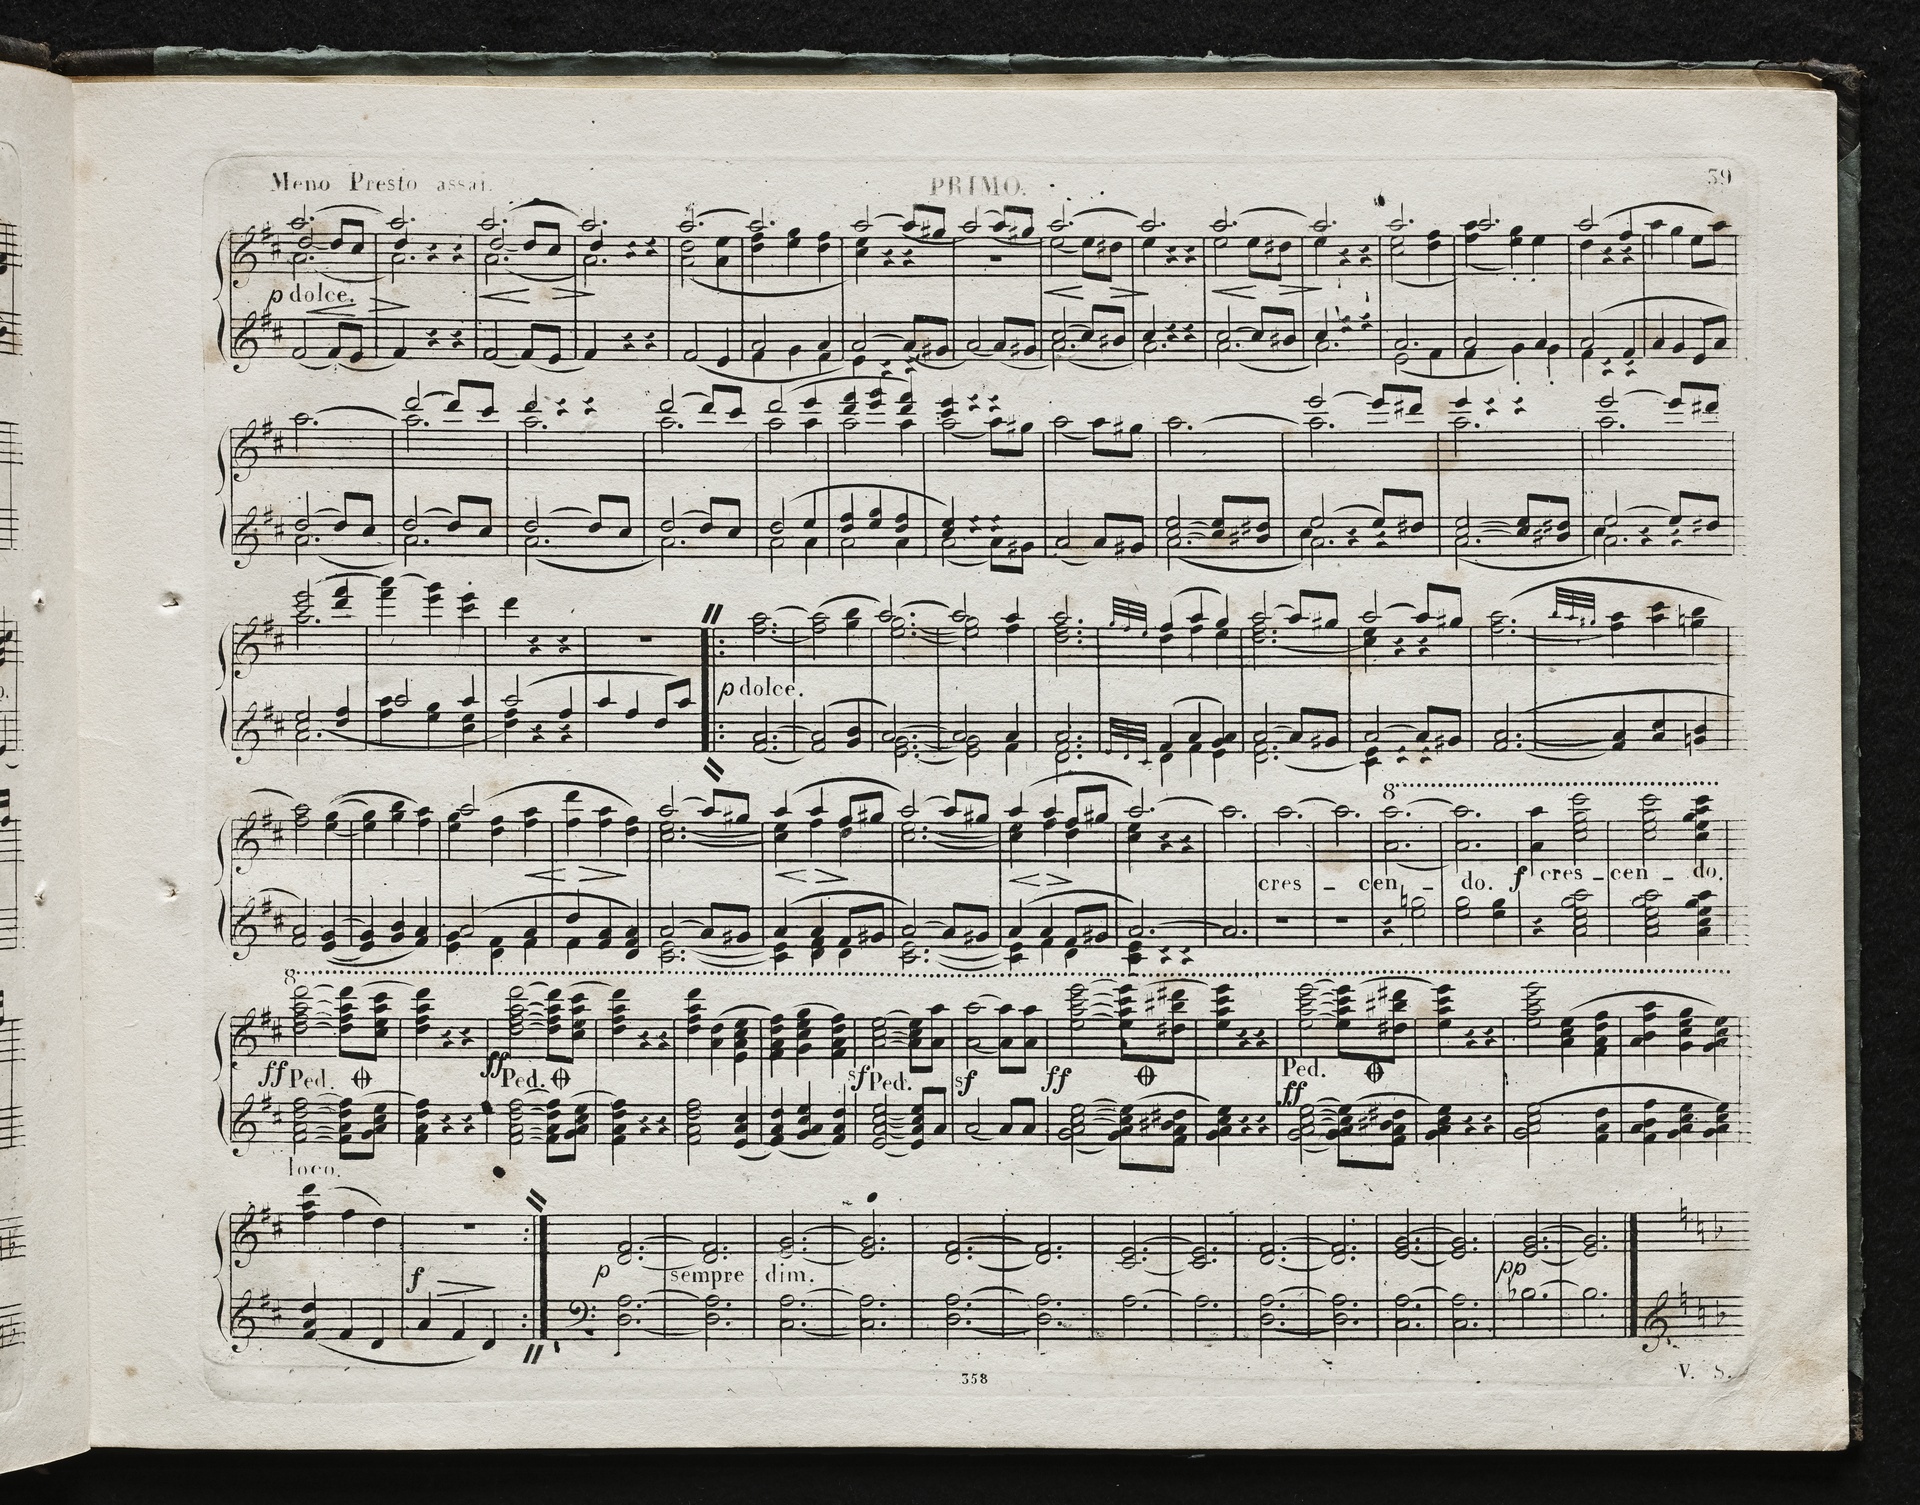 Meno Presto assai. PRIMO. 39
p dolce.
p dolce.
8
cres - cen - do. f cres - cen - do.
8
ff Ped. ff Ped. sf Ped. sf ff Ped.
ff
loco.
f p sempre dim. pp
358 V. S.